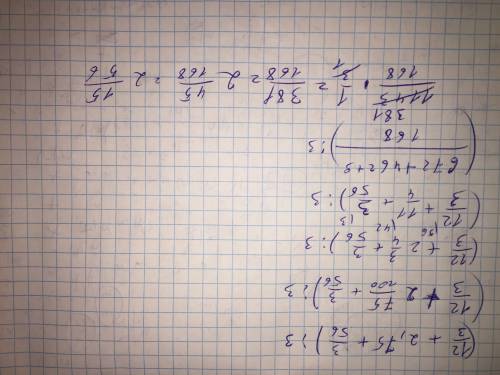 (12/3 + 2,75 + 3/56) : 3
(12/3 + 2 75/100 + 3/56) : 3
(12/3 + 2 3/4 + 3/56) : 3
(12/3 (56 + 11/4 (42 + 3/56 (3) : 3
(672+462+9 / 168) : 3
1143 381/168 · 1/3 1 = 381/168 = 2 45/168 = 2 15/56